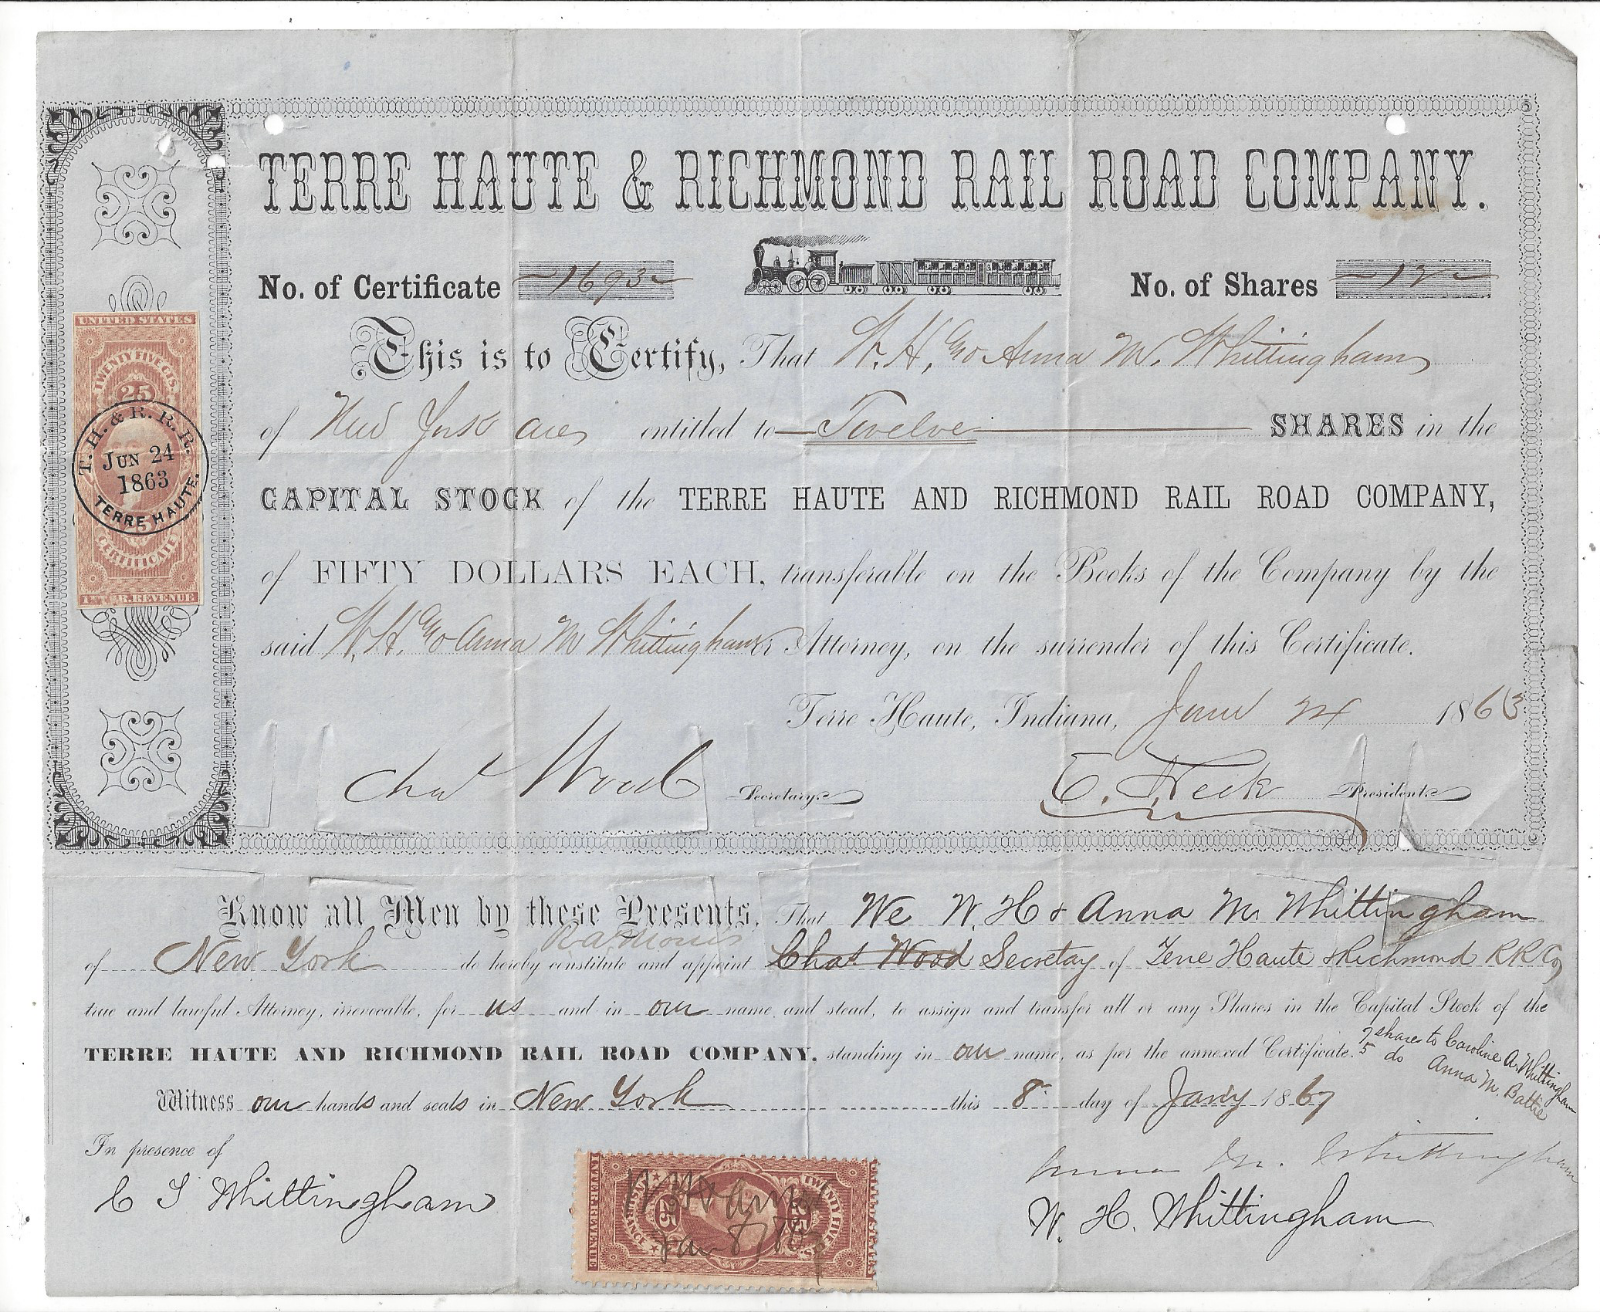 TERRE HAUTE & RICHMOND RAIL ROAD COMPANY.
No. of Certificate 1693 No. of Shares 12
This is to Certify, That W. H, & Anna M. Whittingham
of New York are entitled to Twelve SHARES in the
CAPITAL STOCK of the TERRE HAUTE AND RICHMOND RAIL ROAD COMPANY,
of FIFTY DOLLARS EACH, transferable on the Books of the Company by the
said W. H. & Anna M Whittingham Attorney, on the surrender of this Certificate.
Terre Haute, Indiana, June 24 1863
Chas Wood Secretary E. Peck President
UNITED STATES
TWENTY FIVE CTS.
25
T. H. & R. R. R.
JUN 24
1863
TERRE HAUTE.
CERTIFICATE
INTER. REVENUE
Know all Men by these Presents, That We W. H & Anna M. Whittingham
R. A. Morris
of New York do hereby constitute and appoint Chas Wood Secretary of Terre Haute & Richmond R R Co
true and lawful Attorney, irrevocable, for us and in our name, and stead, to assign and transfer all or any Shares in the Capital Stock of the
TERRE HAUTE AND RICHMOND RAIL ROAD COMPANY, standing in our name, as per the annexed Certificate.
7 shares to Caroline A. Whittingham
5 do Anna M. Battie
Witness our hands and seals in New York this 8 day of Jany 1867
In presence of
C T Whittingham
Anna M. Whittingham
W. H. Whittingham
INTER. REVENUE
TWENTY FIVE CTS.
25